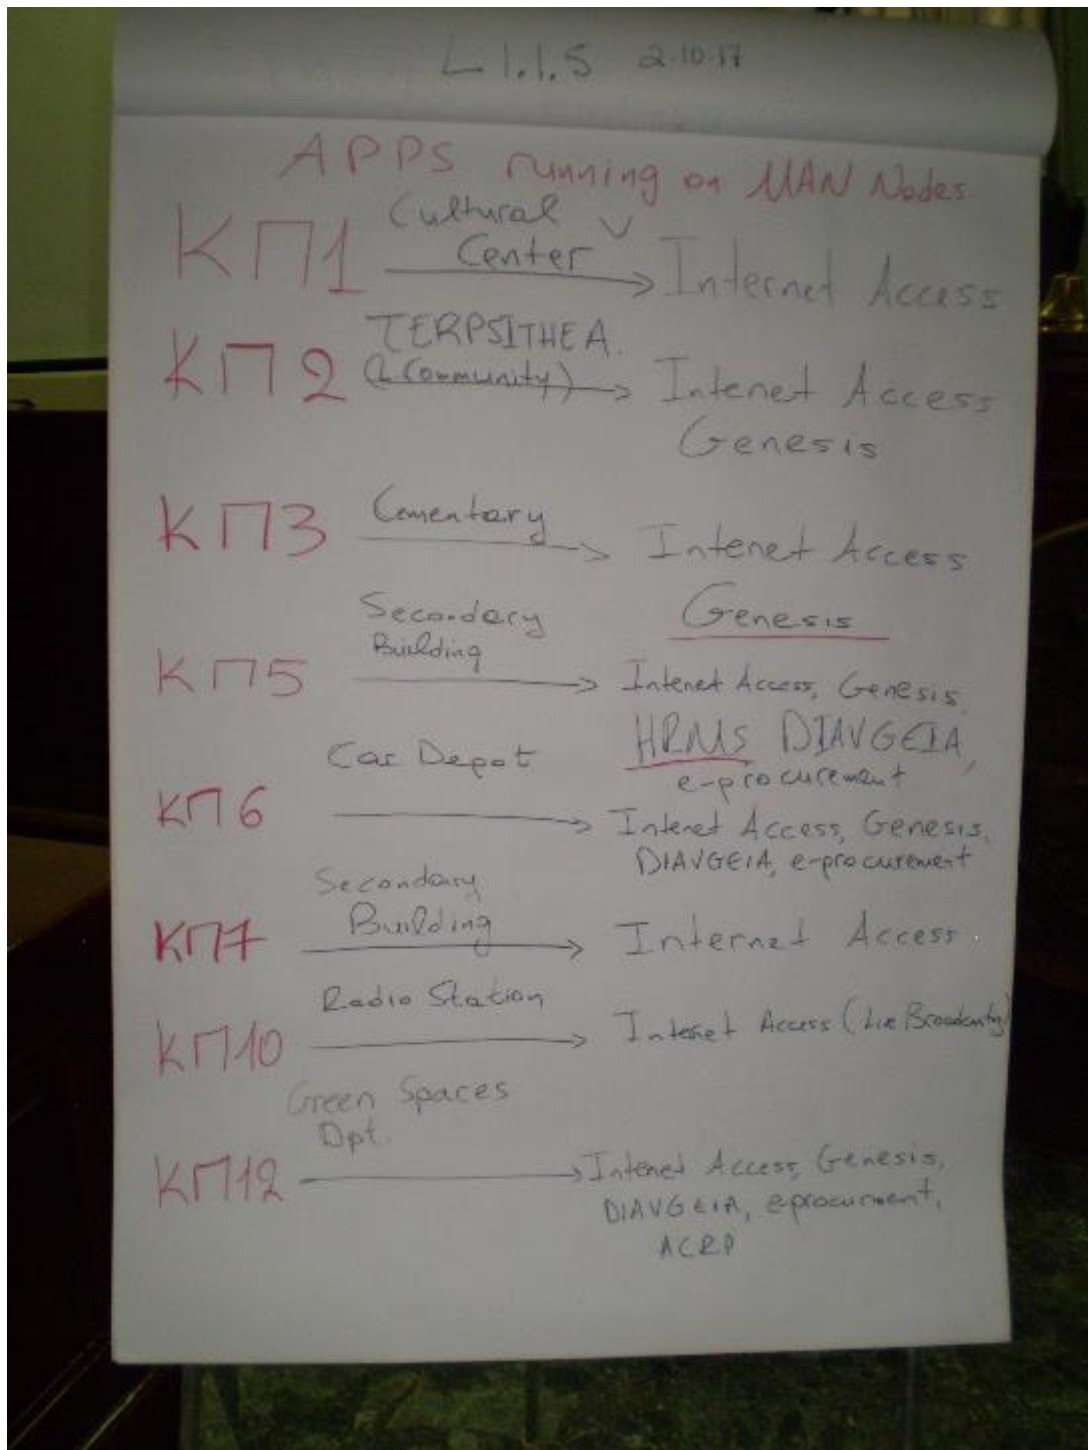 L 1.1.5 2.10.17
APPS running on MAN Nodes
ΚΠ1 Cultural Center → Internet Access
ΚΠ2 TERPSITHEA.
(L Community) → Intenet Access
Genesis
ΚΠ3 Cementary → Intenet Access
Genesis
ΚΠ5 Secondary
Building → Intenet Access, Genesis,
HRMs DIAVGEIA,
e-procurement
ΚΠ6 Car Depot → Intenet Access, Genesis,
DIAVGEIA, e-procurement
ΚΠ7 Secondary
Building → Internet Access
ΚΠ10 Radio Station → Intenet Access (
ΚΠ12 Green Spaces
Dpt. → Intenet Access, Genesis,
DIAVGEIA, e-procurment,